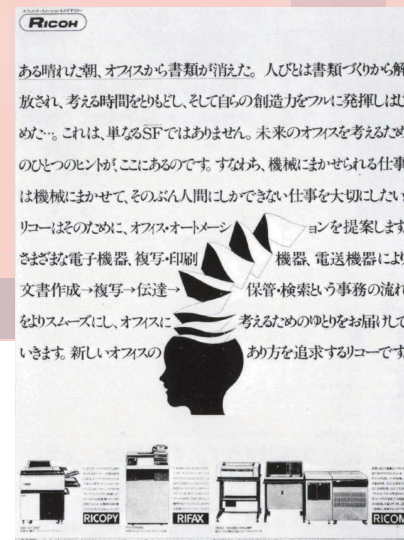 RICOH
ある晴れた朝、オフィスから書類が消えた。人びとは書類づくりから解
放され、考える時間をとりもどし、そして自らの創造力をフルに発揮しはじ
めた…。これは、単なるSFではありません。未来のオフィスを考えるため
のひとつのヒントが、ここにあるのです。すなわち、機械にまかせられる仕事
は機械にまかせて、そのぶん人間にしかできない仕事を大切にしたい
リコーはそのために、オフィス・オートメーションを提案します
さまざまな電子機器、複写・印刷機器、電送機器により
文書作成→複写→伝達→保管・検索という事務の流れ
をよりスムーズにし、オフィスに考えるためのゆとりをお届けして
いきます。新しいオフィスのあり方を追求するリコーです
RICOPY
RIFAX
RICOM